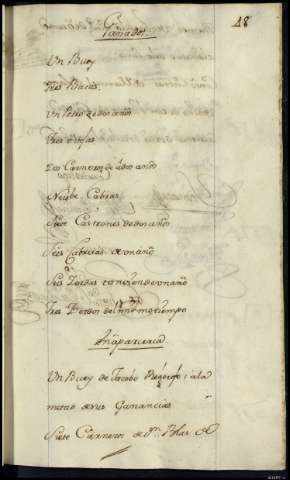 18
Ganados
Un Buey
Tres Bacas
Un Potro de dos años
Tres obejas
Dos Carneros de ados años
Nuebe Cabras
Siete Castrones de dos años
Seis Cabritas de un año
Seis de un año
Tres del mismo tiempo
En aparceria
Un Buey de Jacobo ala
mitad de sus Ganancias
Siete Carneros de Dn Blas